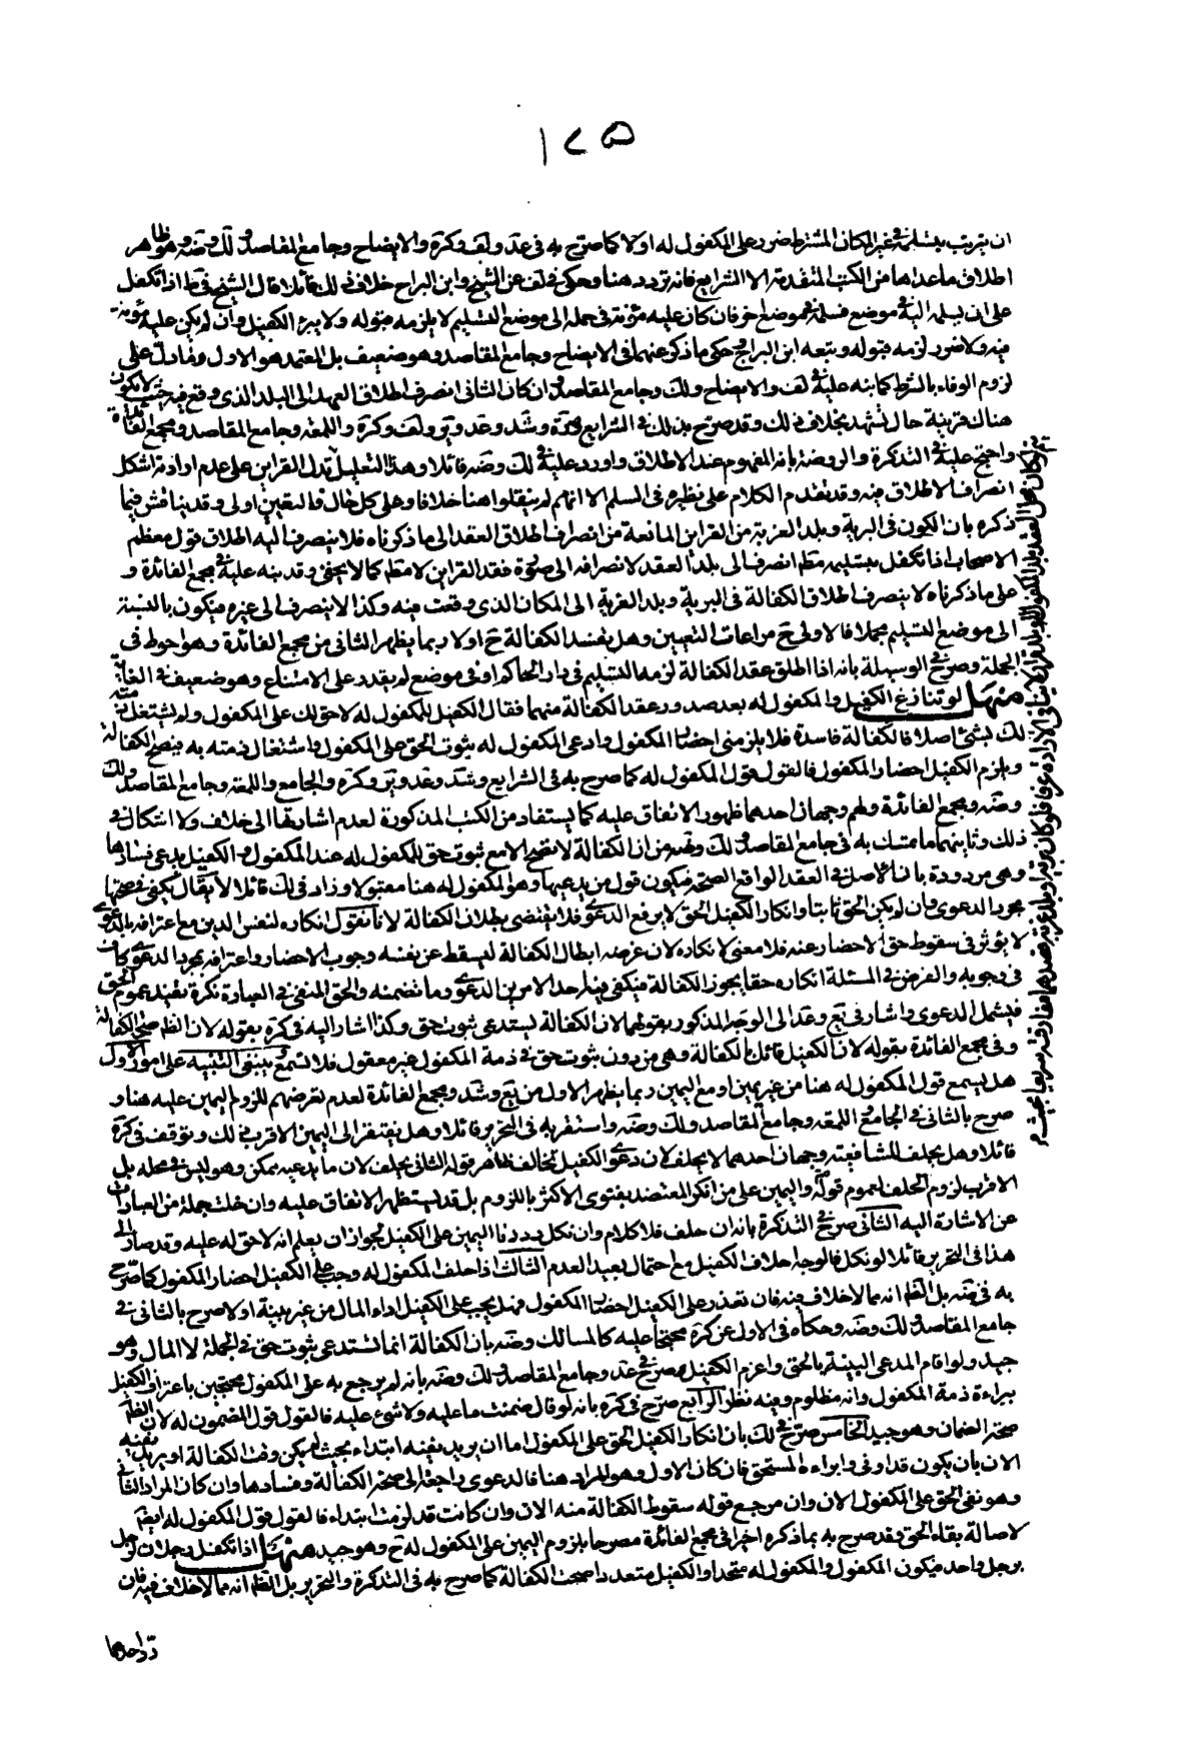 ١٢٥
ان يترتب بتسليمه في غير المكان المشترط ضرر على المكفول له او لا كما صرّح به في عد ولف وكرة والايضاح وجامع المقاصد ولك وضه وهو ظاهر
اطلاق ما عداها من الكتب المتقدمة الا الشرايع فانه تردد هنا وحكى في لف عن الشيخ وابن البراج خلاف ذلك قائلا قال الشيخ في ط اذا تكفل
على ان يسلمه اليه في موضع فسلمه في موضع اخر فان كان عليه مؤنة في حمله الى موضع التسليم لا يلزمه قبوله ولا يبرء الكفيل وان لم يكن عليه مؤنة
فيه ولا ضرر لزمه قبوله وتبعه ابن البراج وحكى ما ذكر عنهما في الايضاح وجامع المقاصد وهو ضعيف بل المعتمد هو الاول وفاد لك على
لزوم الوفاء بالشرط كما نبه عليه في لف والايضاح ولك وجامع المقاصد وان كان الثاني انصرف اطلاق العهد الى البلد الذي وقع فيه حيث لا يكون
هناك قرينة حال تشهد بخلاف ذلك وقد صرّح بذلك في الشرايع وشد وعد وير ولف وكرة واللمعه وجامع المقاصد ومجمع الفائدة
واحتج عليه في التذكرة والروضة بانه المفهوم عند الاطلاق واورد عليه في لك وضه قائلا وهذا التعليل تدل القراين على عدم ارادته اشكل
انصراف الاطلاق فيه وقد تقدم الكلام على نظيره في السلم الا انهم لم ينقلوا هنا خلافا وعلى كل حال فالتعيين اولى وقد يناقش فيما
ذكره بان الكون في البرية وبلد الغربة من القراين المانعة من انصراف اطلاق العقد الى ما ذكرناه فلا ينصرف اليه اطلاق قول معظم
الاصحاب اذا تكفل بتسليمه مطم انصرف الى بلد العقد لانصرافه الى صورة فقد القراين لا مطم كما لا يخفى وقد نبه عليه في مجمع الفائدة و
على ما ذكرناه لا ينصرف اطلاق الكفالة في البرية وبلد الغربة الى المكان الذي وقعت فيه وكذا لا ينصرف الى غيره فيكون بالنسبة
الى موضع التسليم مجملا فالاولى ح مراعات التعيين وهل يفسد الكفالة ح او لا ربما يظهر الثاني من مجمع الفائدة وهو احوط في
الجملة وصرح في الوسيلة بانه اذا اطلق عقد الكفالة لزمه التسليم في دار الحاكم او في موضع لم يقدر على الامتناع وهو ضعيف في الغاية
منهل لو تنازع الكفيل والمكفول له بعد صدور عقد الكفالة منهما فقال الكفيل للمكفول له لا حق لك على المكفول ولم يشتغل ذمته
لك بشئ اصلا فالكفالة فاسدة فلا يلزمني احضار المكفول وادعى المكفول له ثبوت الحق على المكفول واشتغال ذمته به فيصح الكفالة
ويلزم الكفيل احضار المكفول فالقول قول المكفول له كما صرح به في الشرايع وشد وعد وير وكرة والجامع واللمعه وجامع المقاصد ولك
وضه ومجمع الفائدة ولهم وجهان احدهما ظهور الاتفاق عليه كما يستفاد من الكتب المذكورة لعدم اشارتها الى خلاف ولا اشكال في
ذلك وثانيهما ما تمسك به في جامع المقاصد ولك وضه من ان الكفالة لا تصح الا مع ثبوت حق للمكفول له عند المكفول والكفيل يدعى فسادها
وهي مردودة بان الاصل في العقد الواقع الصحة فيكون قول من يدعيها وهو المكفول له هنا معتبرا وزاد في لك قائلا لا يقال يكفي في صحتها
مجرد الدعوى وان لم يكن الحق ثابتا وانكار الكفيل الحق لا يرفع الدعوى فلا يقتضي بطلان الكفالة لانا نقول انكاره لنفس الدين مع اعترافه بالدعوى
لا يؤثر في سقوط حق الاحضار عنه فلا معنى لانكاره لان غرضه ابطال الكفالة ليسقط عن نفسه وجوب الاحضار واعترافه بمجرد الدعوى كاف
في وجوبه والفرض في المسئلة انكاره حقا يجوز الكفالة فيكفي فيه احد الامرين الدعوى وما تضمنه والحق المنفي في العبارة نكرة تفيد عموم الحق
فيشمل الدعوى واشار في يع وعد الى الوجه المذكور بقولهما لان الكفالة يستدعى ثبوت حق وكذا اشار اليه في كرة بقوله لان الظم صحة الكفالة
وفي مجمع الفائدة بقوله لان الكفيل قائل بالكفالة وهي من دون ثبوت حق في ذمة المكفول غير معقول فلا تسمع وينبغى التنبيه على امور الاول
هل يسمع قول المكفول له هنا من غير يمين او مع اليمين ربما يظهر الاول من يع وشد ومجمع الفائدة لعدم تعرضهم للزوم اليمين عليه هنا و
صرح بالثاني في الجامع واللمعه وجامع المقاصد ولك وضه واستقربه في التحرير قائلا وهل يفتقر الى اليمين الاقرب ذلك وتوقف في كرة
قائلا وهل يحلف للشافعية وجهان احدهما لا يحلف لان دعوى الكفيل تخالف ظاهر قوله الثاني يحلف لان ما يدعيه ممكن وهو ليس في محله بل
الاقرب لزوم الحلف لعموم قوله واليمين على من انكر المعتضد بفتوى الاكثر باللزوم بل قد يستظهر الاتفاق عليه وان خلت جملة من العبارات
عن الاشارة اليه الثاني صرح في التذكرة بانه ان حلف فلا كلام وان نكل رددنا اليمين على الكفيل لجواز ان يعلم انه لا حق له عليه وقد صار الى
هذا في التحرير قائلا لو نكل فالوجه احلاف الكفيل مع احتمال بعيد العدم الثالث اذا حلف المكفول له وجب على الكفيل احضار المكفول كما صرّح
به في ضه بل الظم انه مما لا خلاف فيه فان تعذر على الكفيل احضار المكفول فهل يجب على الكفيل اداء المال من غير بينة او لا صرح بالثاني في
جامع المقاصد ولك وضه وحكاه في الاول عن كرة محتجا عليه كالمسالك وضه بان الكفالة انما تستدعى ثبوت حق في الجملة لا المال وهو
جيد ولو اقام المدعى البينة بالحق واغرم الكفيل فصرح في عد وجامع المقاصد ولك وضه بانه لم يرجع به على المكفول محتجين باعتراف الكفيل
ببراءة ذمة المكفول وانه مظلوم وفيه نظر الرابع صرّح في كرة بانه لو قال ضمنت ما عليه ولا شئ عليه فالقول قول المضمون له لان الظم
صحة الضمان وهو جيد الخامس صرّح في لك بان انكار الكفيل الحق على المكفول اما ان يريد نفيه ابتداء بحيث لم يكن وقت الكفالة او يريد نفيه
الان بان يكون قد اوفى وابراءه المستحق فان كان الاول وهو المراد هنا فالدعوى راجعة الى صحة الكفالة وفسادها وان كان المراد الثاني
وهو نفي الحق على المكفول الان وان مرجع قوله سقوط الكفالة عنه الان وان كانت قد لزمت ابتداء فالقول قول المكفول له ايضم
لاصالة بقاء الحق وقد صرح به بما ذكره اخرا في مجمع الفائدة مصرحا بلزوم اليمين على المكفول له ح وهو جيد منهل اذا تكفل رجلان لرجل
برجل واحد فيكون المكفول والمكفول له متحدا والكفيل متعددا صحت الكفالة كما صرح به في التذكرة والتحرير بل الظم انه مما لا خلاف فيه فان
رد احدهما